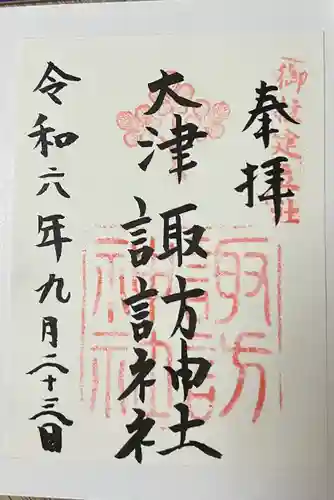 奉拝
大津
諏訪神社
諏訪
神社
令和六年九月二十三日